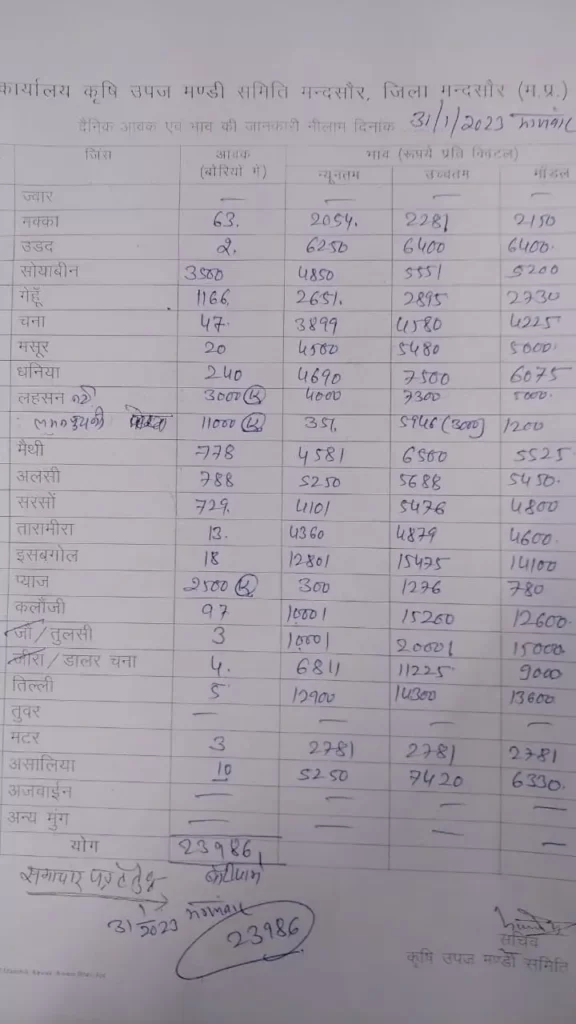 कार्यालय कृषि उपज मण्डी समिति मन्दसौर, जिला मन्दसौर (म.प्र.)
दैनिक आवक एवं भाव की जानकारी नीलाम दिनांक 31/1/2023 मंगलवार
जिंस आवक (बोरियों में) भाव (रूपये प्रति क्विंटल)
न्यूनतम उच्चतम मॉडल
ज्वार — — — —
मक्का 63. 2054. 2281 2150
उडद 2. 6250 6400 6400.
सोयाबीन 3500 4850 5551 5200
गेहूँ 1166. 2651. 2895 2730
चना 47. 3899 4580 4225
मसूर 20 4500 5480 5000.
धनिया 240 4690 7500 6075
लहसन 3000 K 4000 7300 5000.
11000 K 351. 5946 (3000) 1200
मैथी 778 4581 6500 5525
अलसी 788 5250 5688 5450.
सरसों 729. 4101 5476 4800
तारामीरा 13. 4360 4879 4600.
इसबगोल 18 12801 15475 14100
प्याज 2500 K 300 1276 780
कलौंजी 97 10001 15200 12600.
जौ/तुलसी 3 10001 20001 15000
जीरा/डालर चना 4. 6811 11225 9000
तिल्ली 5 12900 14300 13600
तुवर — — — —
मटर 3 2781 2781 2781
असालिया 10 5250 7420 6330.
अजवाईन — — — —
अन्य मुंग — — — —
योग 23986 —
समाचार पत्र हेतु
31/1/2023 मंगलवार
23986
सचिव
कृषि उपज मण्डी समिति